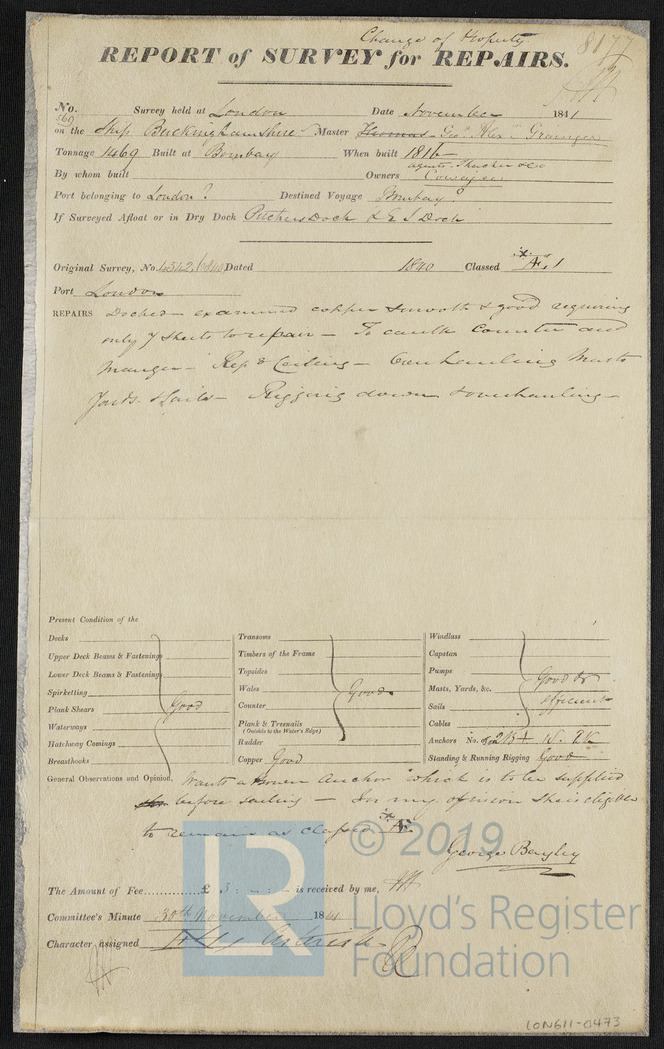 Change of Property
8177
REPORT of SURVEY for REPAIRS.
No. 569 Survey held at London Date November 1841
on the Ship Buckinghamshire Master Thomas Geo. Alex. Grainger
Tonnage 1469 Built at Bombay When built 1816
By whom built Owners agents Thacker & Co
Cowasjee
Port belonging to London? Destined Voyage Bombay?
If Surveyed Afloat or in Dry Dock Pitchers Dock & E I Dock
Original Survey, No. 4342 Dated 1840 Classed Æ 1
Port London
REPAIRS Docked - examined copper smooth & good requiring
only 7 sheets to repair - To caulk Counter and
Manger - Rep & Ceiling - Overhauling Masts
Yards & Sails - Rigging down & overhauling -
Present Condition of the
Decks
Upper Deck Beams & Fastenings
Lower Deck Beams & Fastenings
Spirketting
Plank Shears
Waterways
Hatchway Comings
Breasthooks
Good
Transoms
Timbers of the Frame
Topsides
Wales
Counter
Plank & Treenails
(Outside to the Water's Edge)
Rudder
Good
Copper Good
Windlass
Capstan
Pumps
Masts, Yards, &c.
Sails
Cables
Good &
efficient
Anchors No.
Standing & Running Rigging Good
General Observations and Opinion, Wants a Bower Anchor which is to be supplied
before sailing - In my opinion She is eligible
to remain as classed Æ
George Bayley
The Amount of Fee............ £ 3 : - : - is received by me,
Committee's Minute 30th November 1841
Character assigned
© 2019
LR
Lloyd's Register
Foundation
LON611-0473